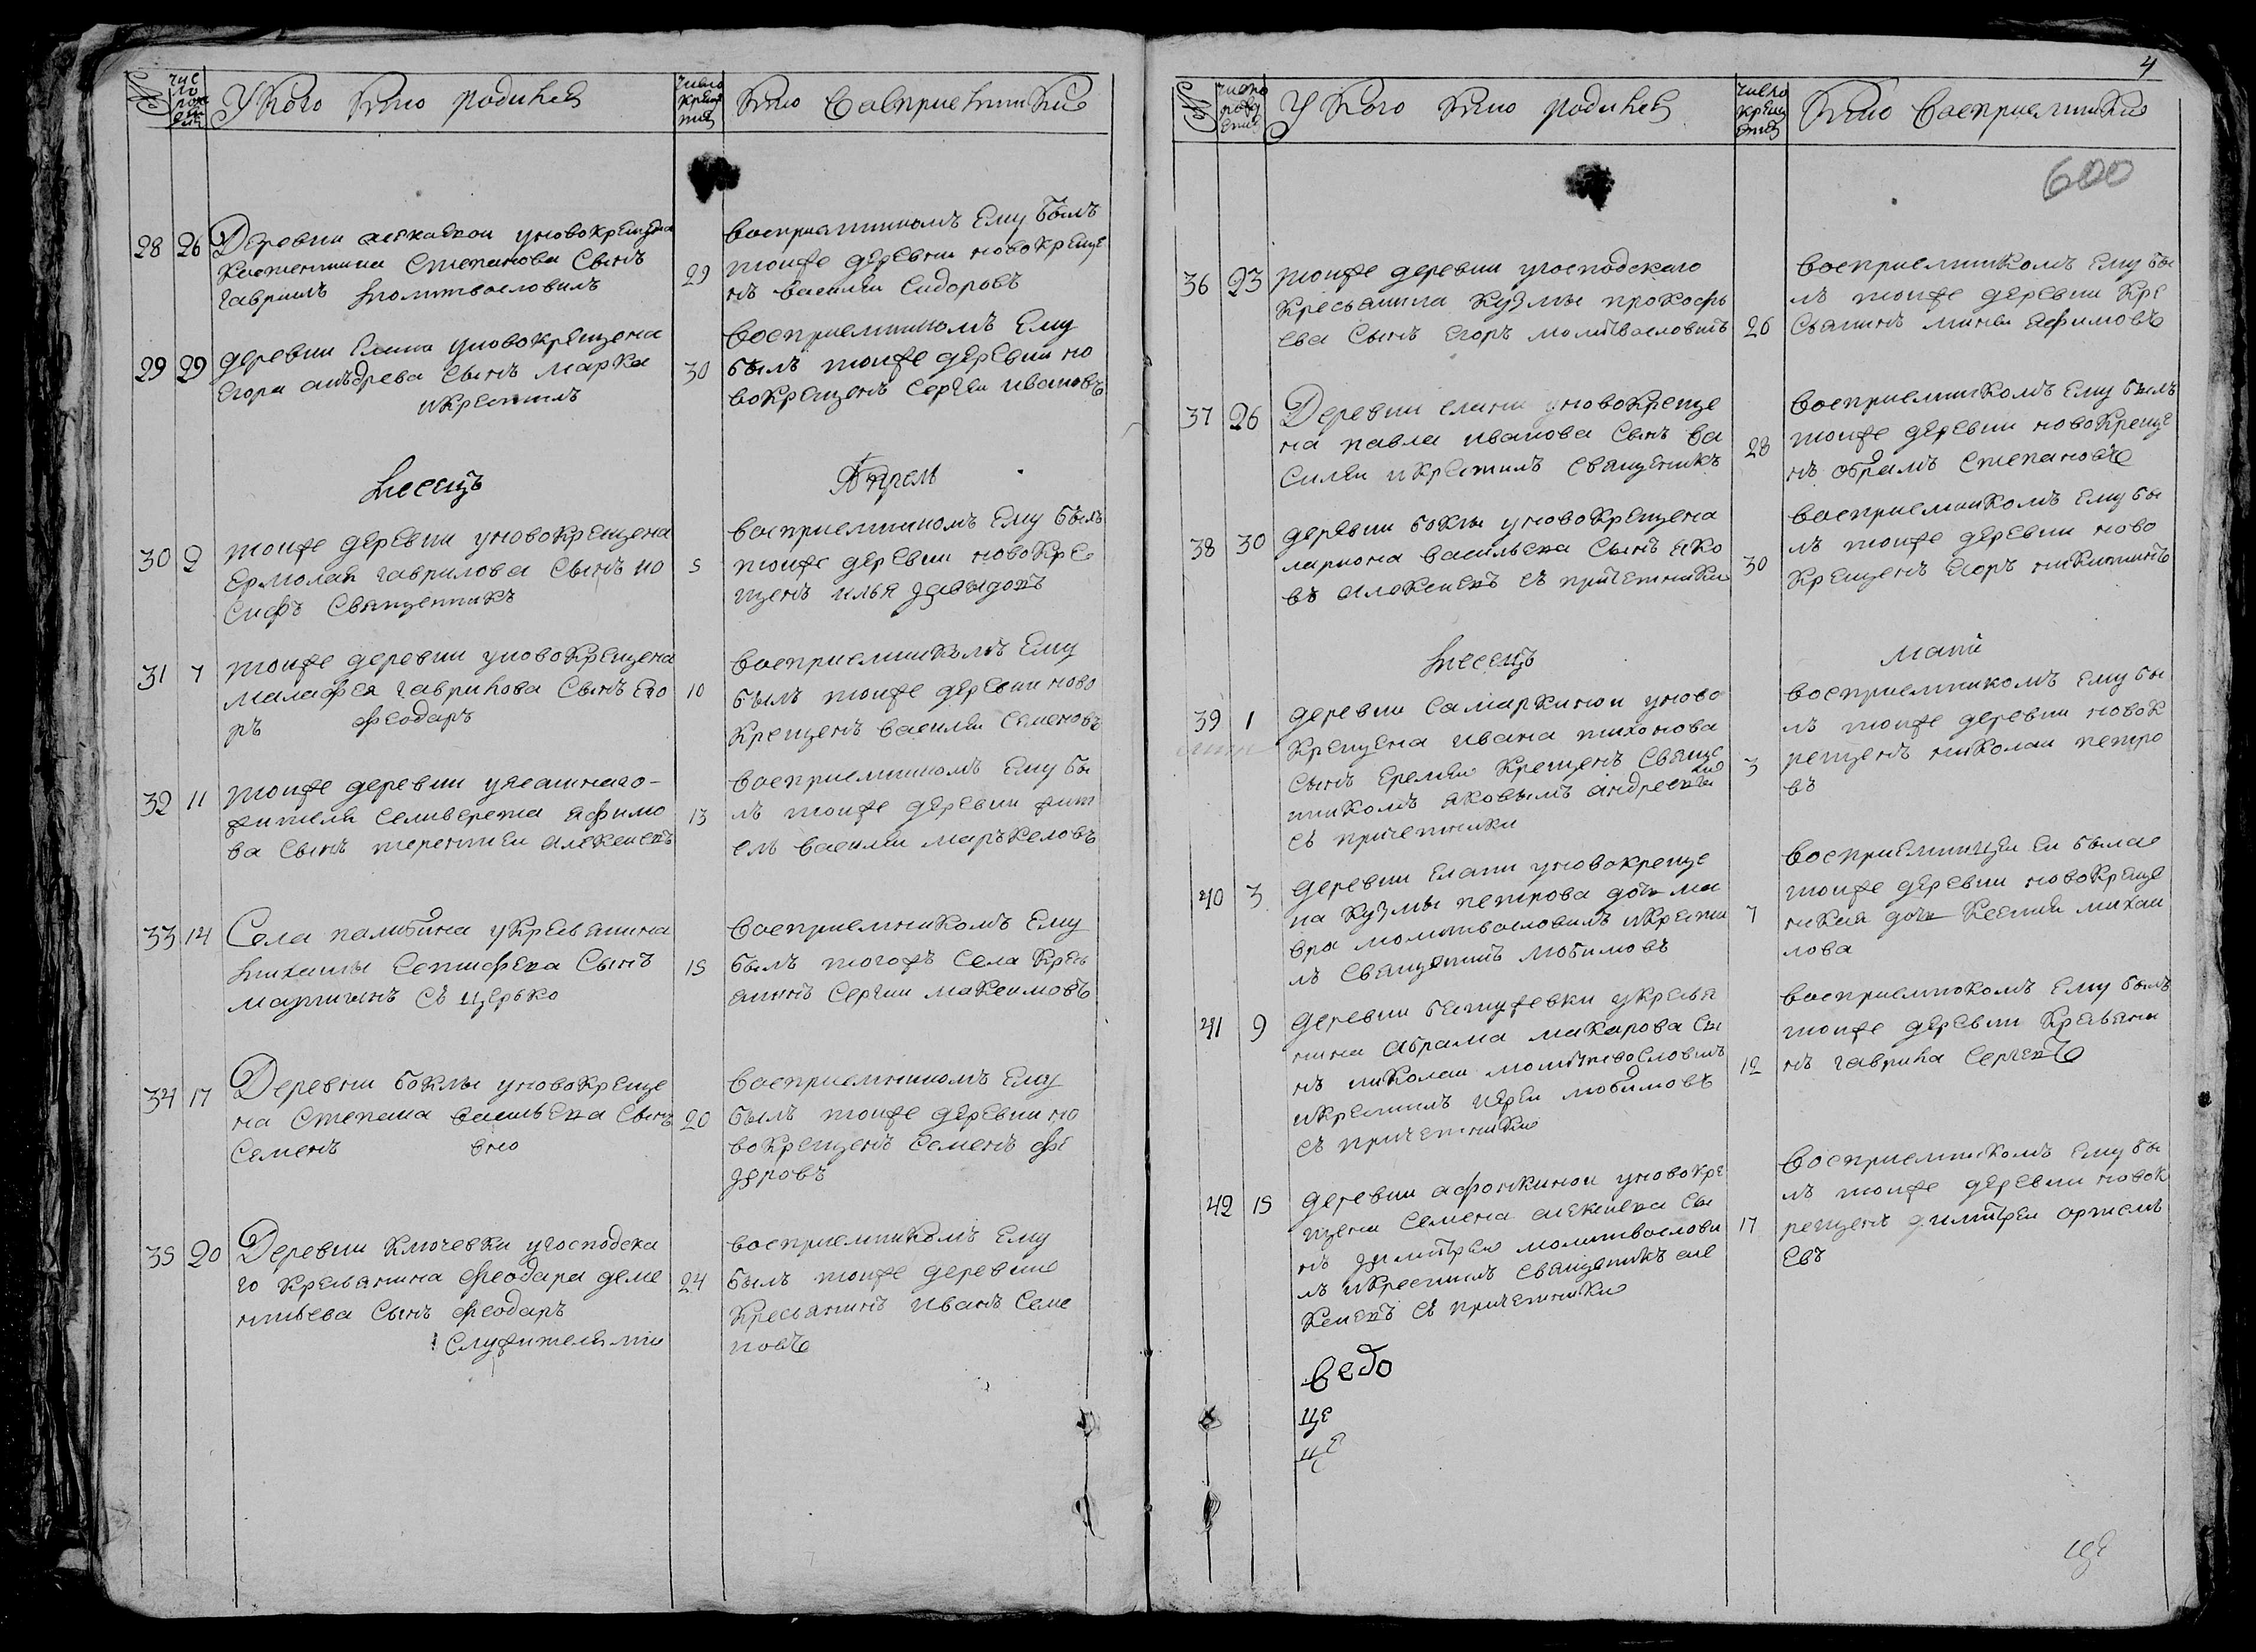 №
число рождения
У кого кто родился
число крещения
кто восприемники
28
26
Деревни у новокрещена
Костентина Степанова сынъ
Гаврилъ молитвословилъ
29
восприемникомъ ему былъ
тоиже деревни новокреще
нъ Василеи Сидоровъ
29
29
деревни Елани у новокрещена
Егора анъдрева сынъ Марка
и крестилъ
30
восприемникомъ ему
былъ тоиже деревни но
вокрещенъ Сергеи Ивановъ
месецъ
Апрель
30
2
тоиже деревни у новокрещена
Ермолая Гаврилова сынъ ио
сифъ Священникъ
5
восприемникомъ ему былъ
тоиже деревни новокре
щенъ Илья Давыдовъ
31
7
тоиже деревни у новокрещена
Малафея Гаврилова сынъ Его
ръ Феодаръ
10
восприемникомъ ему
былъ тоиже деревни ново
крещенъ Василеи Семеновъ
32
11
тоиже деревни у ясашнаго
жителя Селиверста Афимо
ва сынъ терентеи Алексеевъ
13
восприемникомъ ему бы
лъ тоиже деревни жит
ель Василеи Маръкеловъ
33
14
Села палибина у кресьянина
Михаилы сынъ
мартинъ съ церько
15
восприемникомъ ему
былъ тогожъ села кресь
янинъ Сергеи Максимовъ
34
17
Деревни Боклы у новокреще
на Степана Васильева сынъ
Семенъ вно
20
восприемникомъ ему
былъ тоиже деревни но
вокрещенъ Семенъ Фе
доровъ
35
20
Деревни Ключевки у господска
го кресьянина Феодара деме
нтьева сынъ Феодаръ
служительми
24
восприемникомъ ему
былъ тоиже деревни
кресьянинъ Иванъ Семе
новъ
4
№
число рождения
У кого кто родился
число крещения
кто восприемники
600
36
23
тоиже деревни у господскаго
кресьянина Кузмы прокофь
ева сынъ Егоръ молитвословитъ
26
восприемникомъ ему бы
лъ тоиже деревни кре
сьянинъ Афимовъ
37
26
Деревни елани у новокреще
на павла иванова сынъ ва
силеи и крестилъ священикъ
28
восприемникомъ ему былъ
тоиже деревни новокреще
нъ Обрамъ Степановъ
38
30
деревни боклы у новокрещена
лариона васильева сынъ яко
въ алексеевъ съ причетники
30
восприемникомъ ему бы
лъ тоиже деревни ново
крещенъ Егоръ никитинъ
месецъ
маий
39
1
деревни Самаркинои у ново
крещена ивана тихонова
сынъ еремеи крещенъ свяще
нникомъ яковымъ андреевы
съ причетники
3
восприемникомъ ему бы
лъ тоиже деревни новок
рещенъ николаи петро
въ
40
3
деревни елани у новокреще
на кузмы петрова дочь ма
вра молитвословилъ и крести
лъ священикъ любимовъ
7
восприемницеи еи была
тоиже деревни новокреще
нная дочь михаи
лова
41
9
деревни у кресья
нина абрама макарова сы
нъ николаи молитвословилъ
и крестилъ иереи любимовъ
съ причетники
12
восприемникомъ ему былъ
тоиже деревни кресьяни
нъ гаврила Сергеевъ
42
15
деревни афонкинои у новокре
щена Семена алексеева сы
нъ димитреи молитвослови
лъ и крестилъ священикъ але
ксеевъ съ причетники
17
восприемникомъ ему бы
лъ тоиже деревни новок
рещенъ димитреи артемь
евъ
ведо
це
це